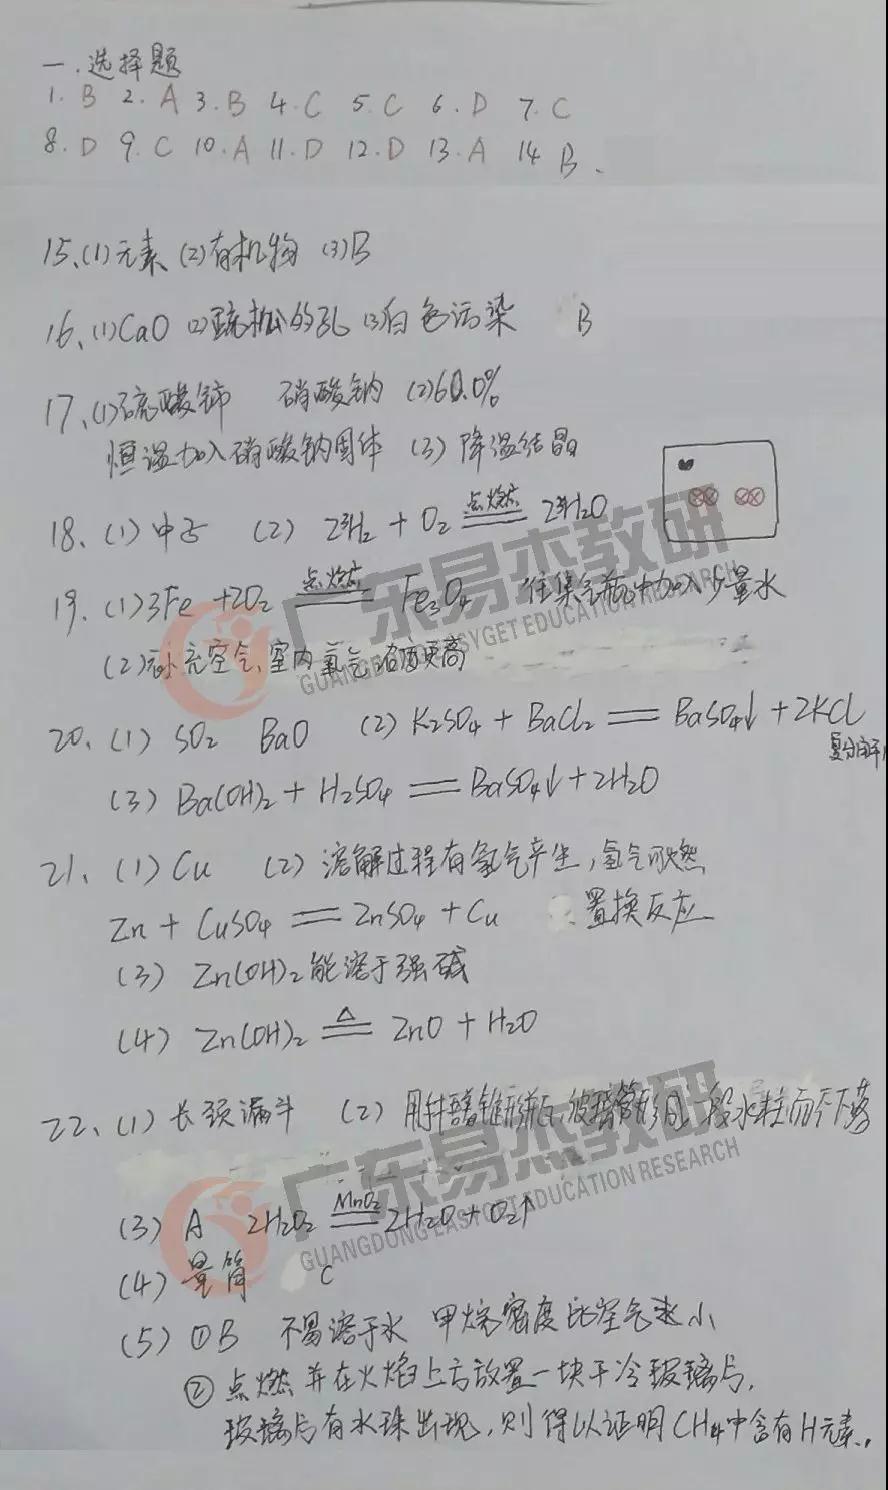 一.选择题
1. B 2. A 3. B 4. C 5. C 6. D 7. C
8. D 9. C 10. A 11. D 12. D 13. A 14 B、
15、(1)元素 (2)有机物 (3)B
16、(1)CaO (2)疏松的孔 (3)白色污染 B
17、(1)硫酸铈 硝酸钠 (2)60.0%
恒温加入硝酸钠固体 (3) 降温结晶
18、(1) 中子 (2) 2³H₂ + O₂ 点燃 2³H₂O
19、(1)3Fe +2O₂ 点燃 Fe₃O₄ 往集气瓶中加入少量水
(2)补充空气、室内氧气浓度更高
20、(1) SO₂ BaO (2) K₂SO₄ + BaCl₂ == BaSO₄↓ + 2KCl
复分解
(3) Ba(OH)₂ + H₂SO₄ == BaSO₄↓ + 2H₂O
21、(1) Cu (2) 溶解过程有氢气产生,氢气可燃
Zn + CuSO₄ == ZnSO₄ + Cu 置换反应
(3) Zn(OH)₂能溶于强碱
(4) Zn(OH)₂ △ ZnO + H₂O
22、(1) 长颈漏斗 (2) 锥形瓶 玻璃管形成一段水柱而不下落
(3) A 2H₂O₂ MnO₂ 2H₂O + O₂↑
(4) 量筒 C
(5) ①B 不易溶于水 甲烷密度比空气小
② 点燃并在火焰上方放置一块干冷玻璃片,
玻璃片有水珠出现,则得以证明CH₄中含有H元素.
广东易杰教研
GUANGDONG EASYGET EDUCATION RESEARCH
广东易杰教研
GUANGDONG EASYGET EDUCATION RESEARCH